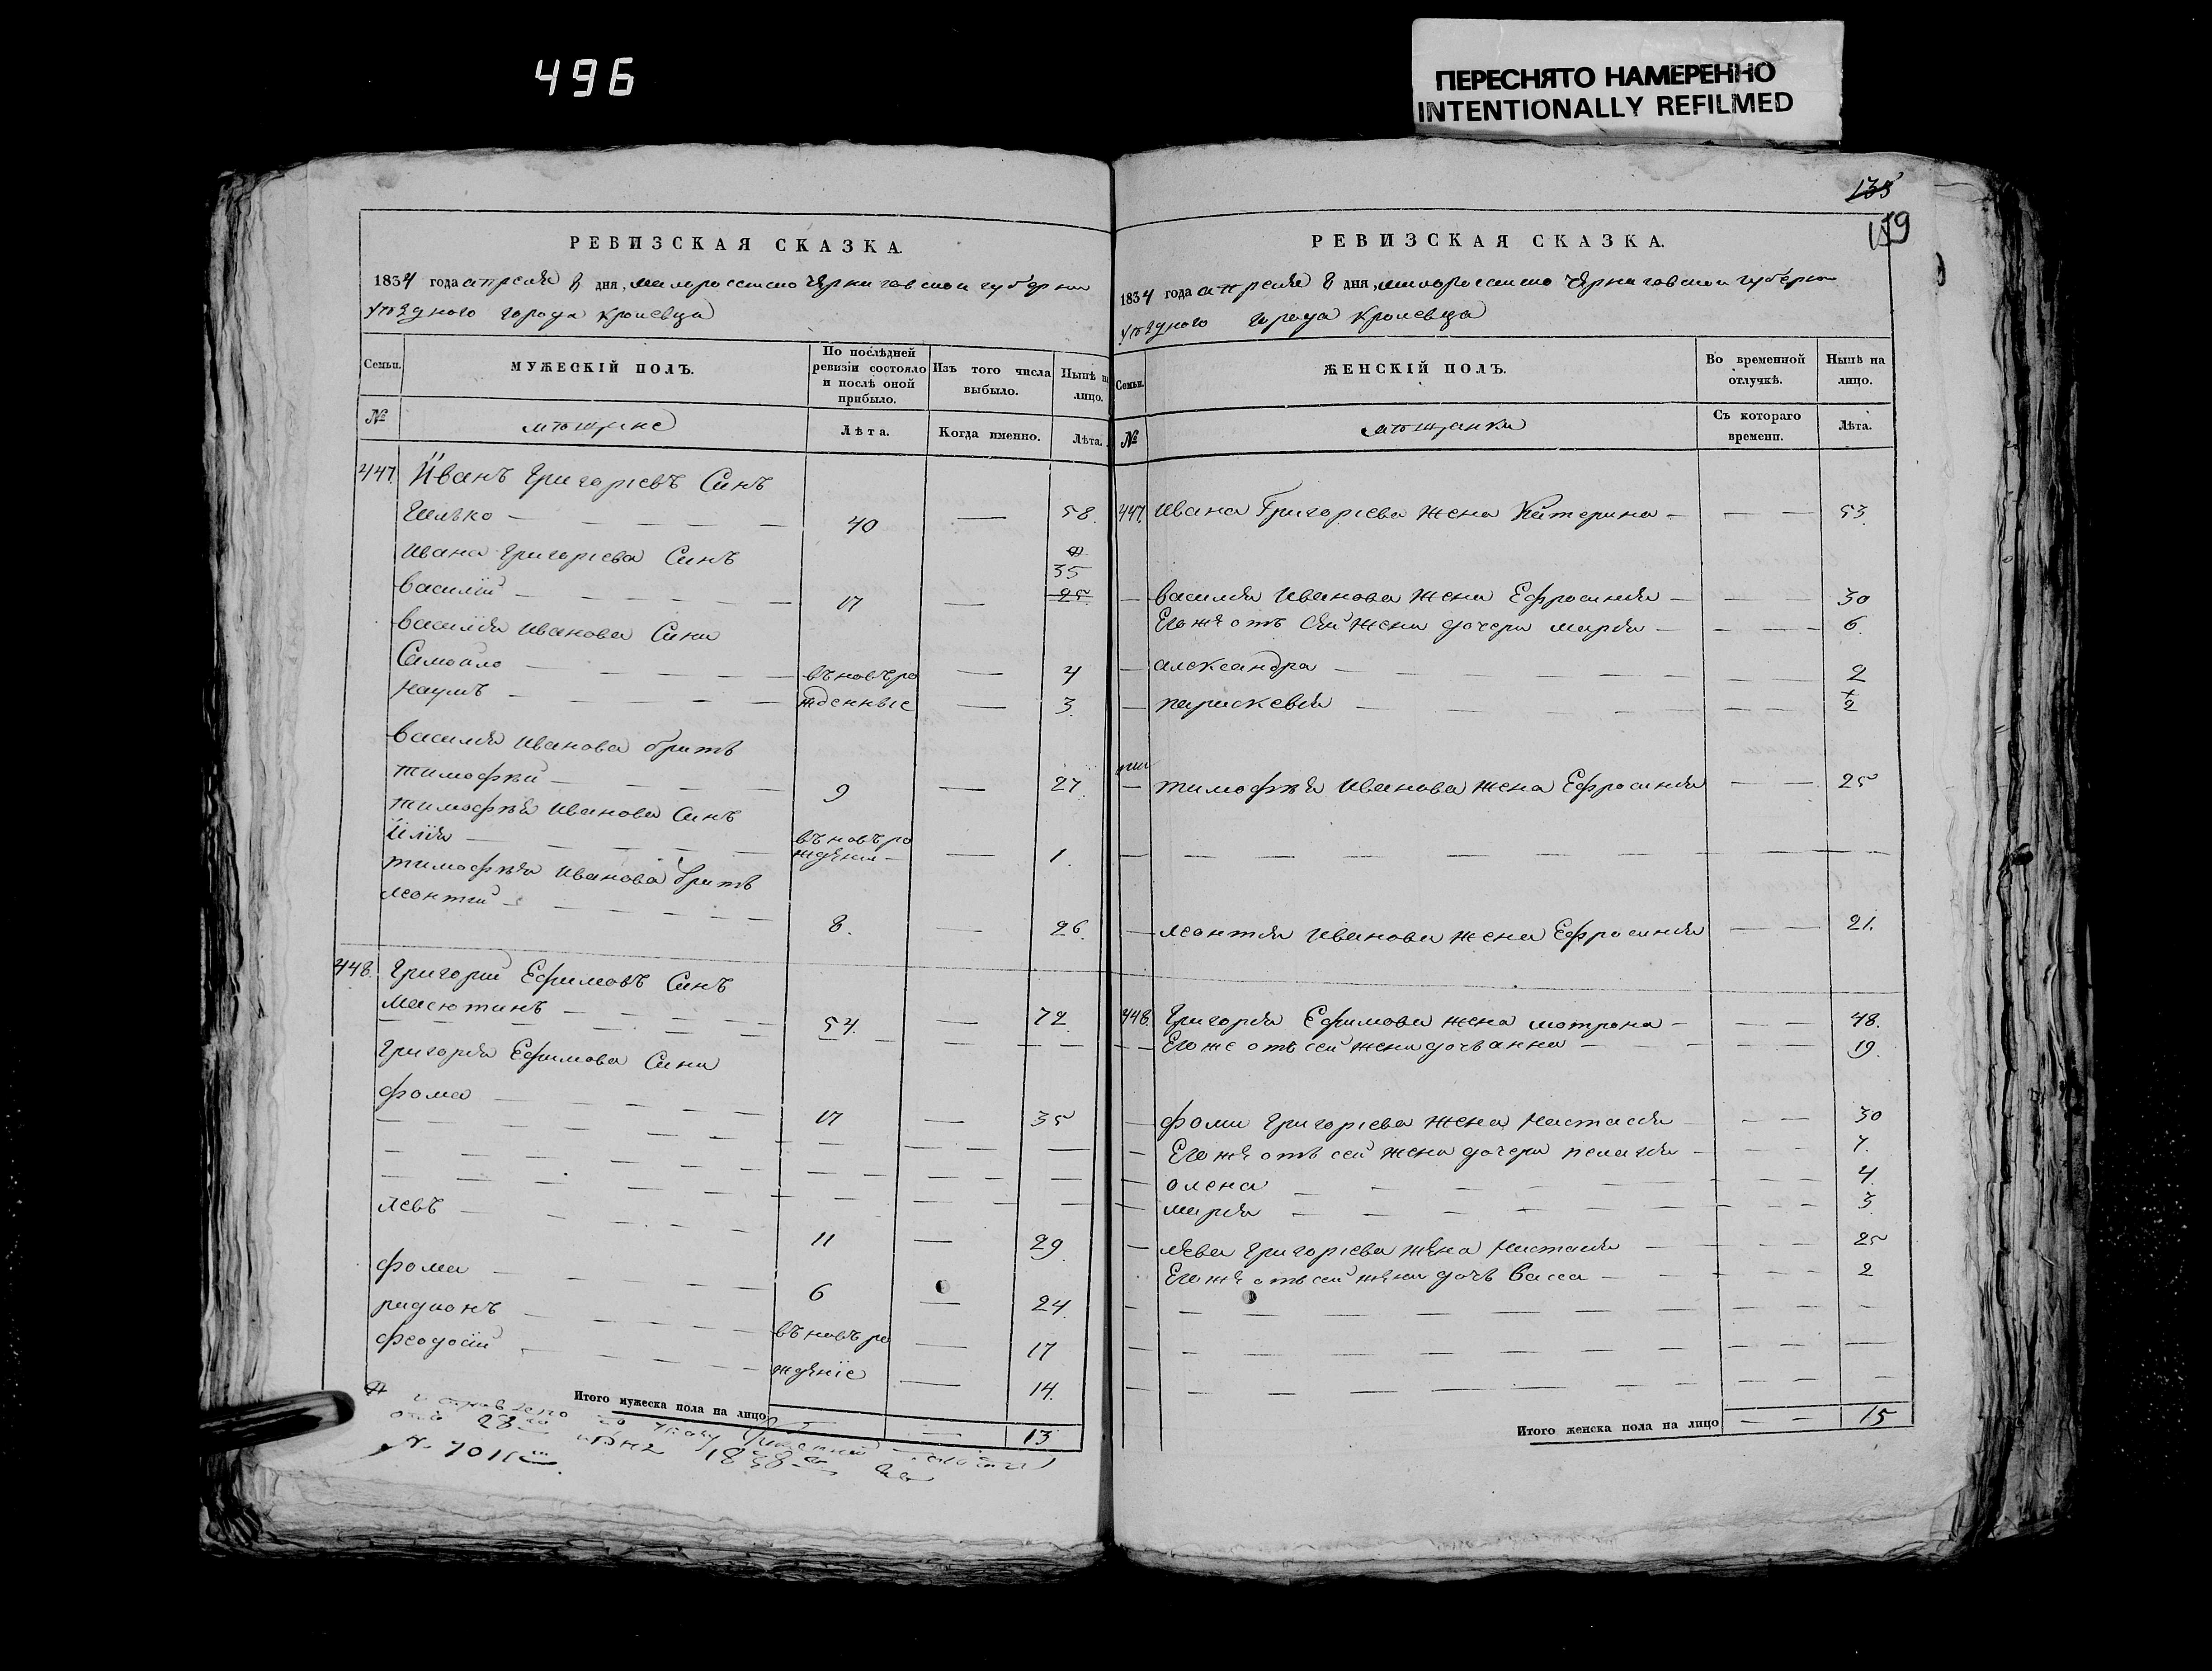 496
ПЕРЕСНЯТО НАМЕРЕННО
INTENTIONALLY REFILMED
РЕВИЗСКАЯ СКАЗКА.
1834 года апреля 8 дня, малороссийско Черниговской губернии
уѣздного города Кролевца
Семьи.
МУЖЕСКІЙ ПОЛЪ.
По послѣдней
ревизіи состояло
и послѣ оной
прибыло.
Изъ того числа
выбыло.
Нынѣ на
лицо.
№
мѣщане
Лѣта.
Когда именно.
Лѣта.
447. Иванъ Григоріевъ Синъ
Гилько — 40 — 58.
Ивана Григоріева Синъ
35
Василій — 17 — 25.
Василія Иванова Сини
Самойло — въновъро — 4
Наумъ — жденные — 3.
Василія Иванова братъ
Тимофѣй — 9 — 27.
Тимофѣя Иванова Синъ
Илія — въновъро
жденн — 1.
Тимофѣя Иванова братъ
Леонтій — 8. — 26.
448. Григорій Ефимовъ Синъ
Масютинъ — 54. — 72.
Григорія Ефимова Сини
Фома — 17 — 35
Левъ — 11 — 29.
Фома — 6 — 24.
Радионъ — въновъро — 17
Феодосій — жденіе — 14.
Итого мужеска пола на лицо — 13
исправлено по указу Казенной палаты
отъ 28го 1838 года
№ 7011
135
159
РЕВИЗСКАЯ СКАЗКА.
1834 года апреля 8 дня, малороссийско Черниговской губернии
уѣздного города Кролевца
Семьи.
ЖЕНСКІЙ ПОЛЪ.
Во временной
отлучкѣ.
Нынѣ на
лицо.
№
мѣщанки
Съ котораго
времени.
Лѣта.
447. Ивана Григоріева жена Катерина — 53.
Василія Иванова жена Ефросинія — 30
Его же отъ сей жени дочери Марія — 6.
Александра — 2
Параскевія — 2
Тимофѣя Иванова жена Ефросинія — 25
Леонтія Иванова жена Ефросинія — 21.
448. Григорія Ефимова жена Мотрона — 48.
Его же отъ сей жени дочь Анна — 19.
Фоми Григоріева жена Настасія — 30
Его же отъ сей жени дочери Пелагія — 7.
Олена — 4.
Марія — 3.
Лева Григоріева жена Настасія — 25
Его же отъ сей жени дочь Васса — 2
Итого женска пола на лицо — 15